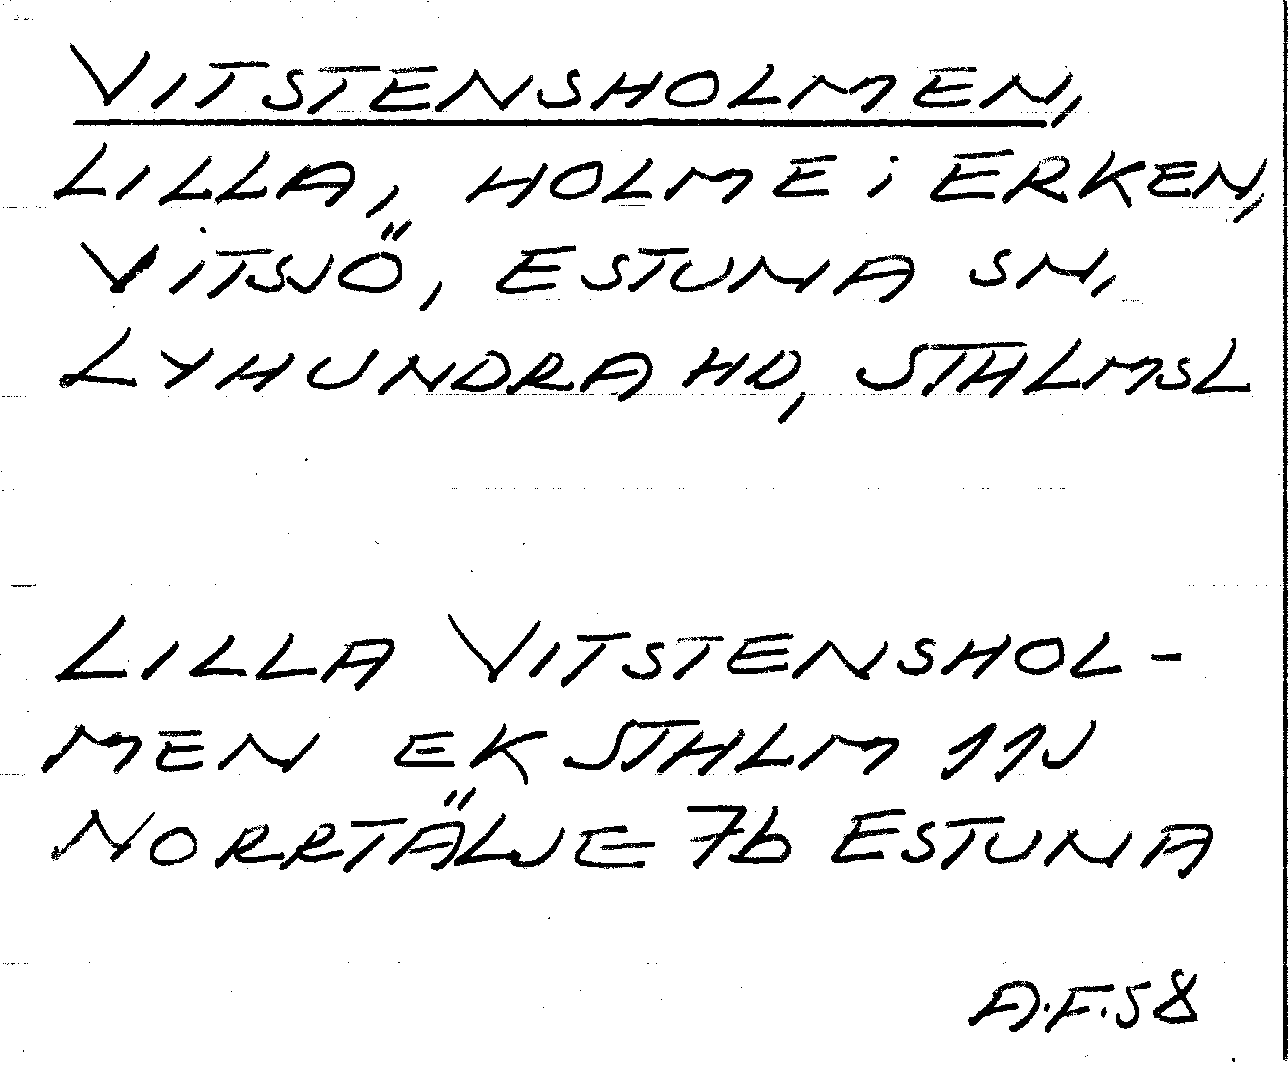 VITSTENSHOLMEN,
LILLA, HOLME i ERKEN,
VITSJÖ, ESTUNA SN,
LYHUNDRA HD, STHLMSL
LILLA VITSTENSHOL-
MEN EK STHLM 11J
NORRTÄLJE 7b ESTUNA
A.F.58